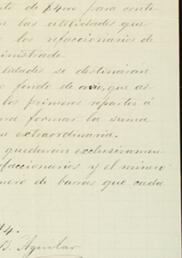 de para conti
las utilidades que
los refaccionarios de
ministrado
lidades se destinarán
fondo de que as
los primeros repartos á
formar la suma
extraordinaria.
quedaran exclusivamen
faccionarios y el minero
mero de barras que cada
14.
B. Aguilar